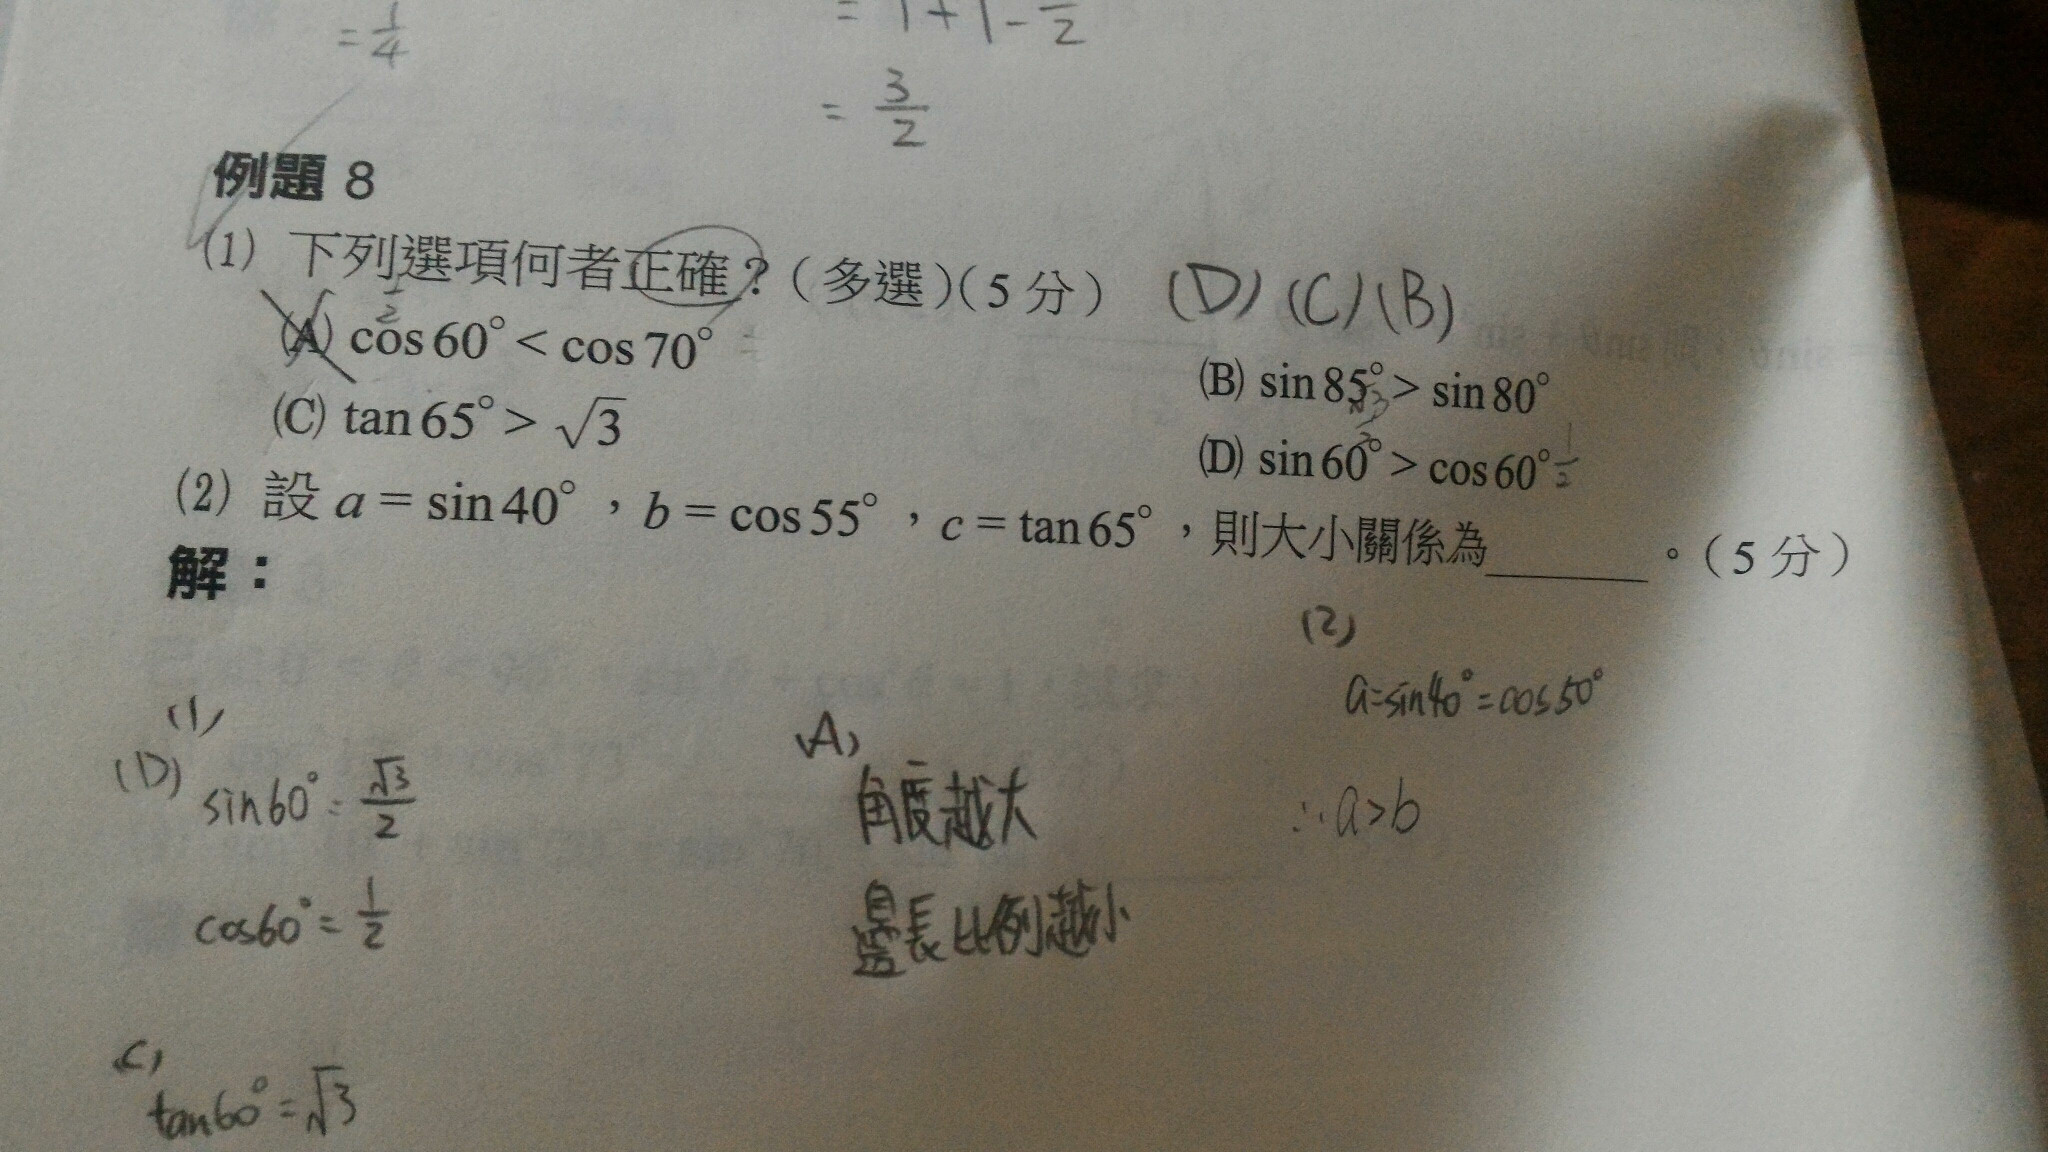 = 1/4
= 1 + 1 - 1/2
= 3/2
例題 8
(1) 下列選項何者正確？（多選）（5 分） (D) (C) (B)
(A) cos 60° < cos 70°
1/2
(B) sin 85° > sin 80°
(C) tan 65° > √3
(D) sin 60° > cos 60°
√3/2
1/2
(2) 設 a = sin 40°，b = cos 55°，c = tan 65°，則大小關係為______。（5 分）
解：
(1)
(D) sin60° = √3/2
cos60° = 1/2
(C)
tan60° = √3
(A)
角度越大
邊長比例越小
(2)
a=sin40°=cos50°
∴a>b